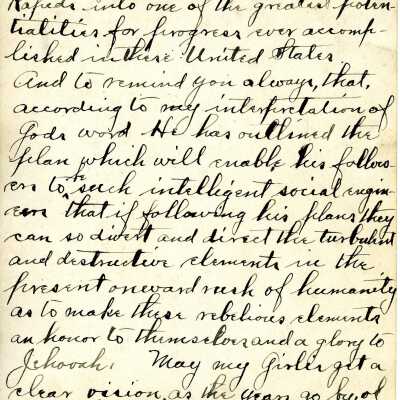 Rapids into one of the greatest poten-
tialities for progress ever accomp-
lished in these United States
And to remind you always, that,
according to my interpretation of
Gods word He has outlined the
plan which will enable his follow-
ers to be such intelligent social engin-
eers that if following his plans they
can so divert and direct the turbulent
and destructive elements in the
present onward rush of humanity
as to make these rebelious elements
an honor to themselves and a glory to
Jehovah. May my Girls get a
clear vision, as the years go by, of